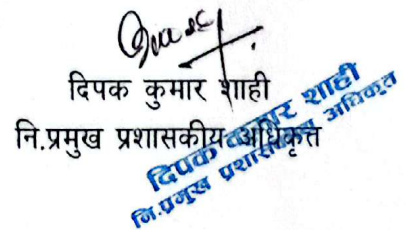 दिपक कुमार शाही
नि.प्रमुख प्रशासकीय अधिकृत्त
दिपक कुमार शाही
नि.प्रमुख प्रशासकीय अधिकृत